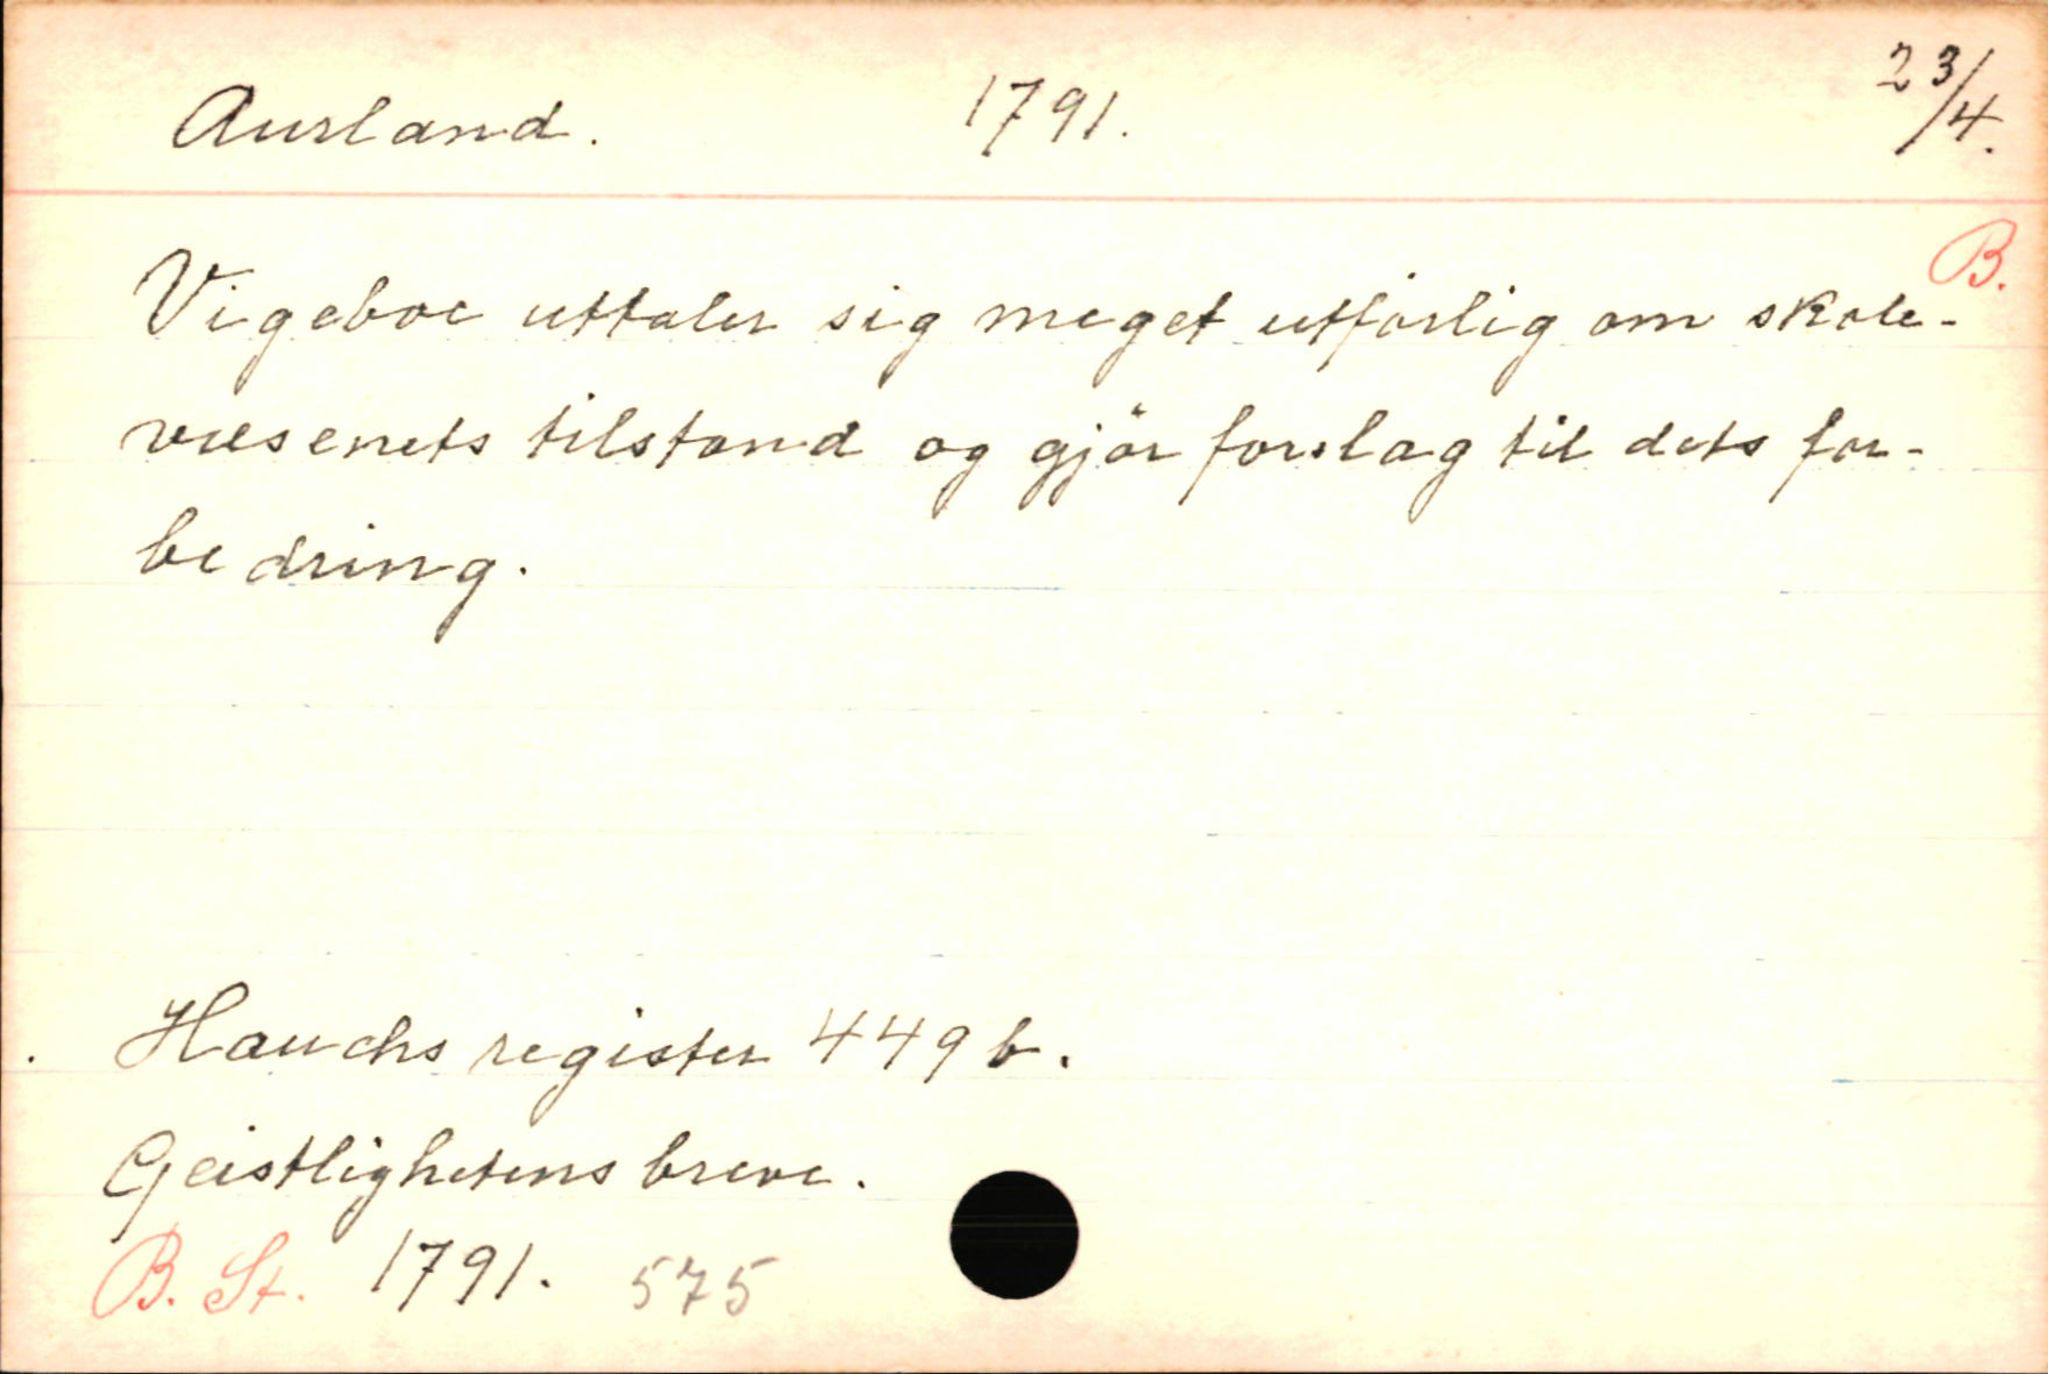 Aurland. 1791. 23/4.
B.
Vigeboe uttaler sig meget utførlig om skole-
væsenets tilstand og gjør forslag til dets for-
bedring.
Hauchs register 449 b.
Geistlighetens breve.
B. St. 1791. 575